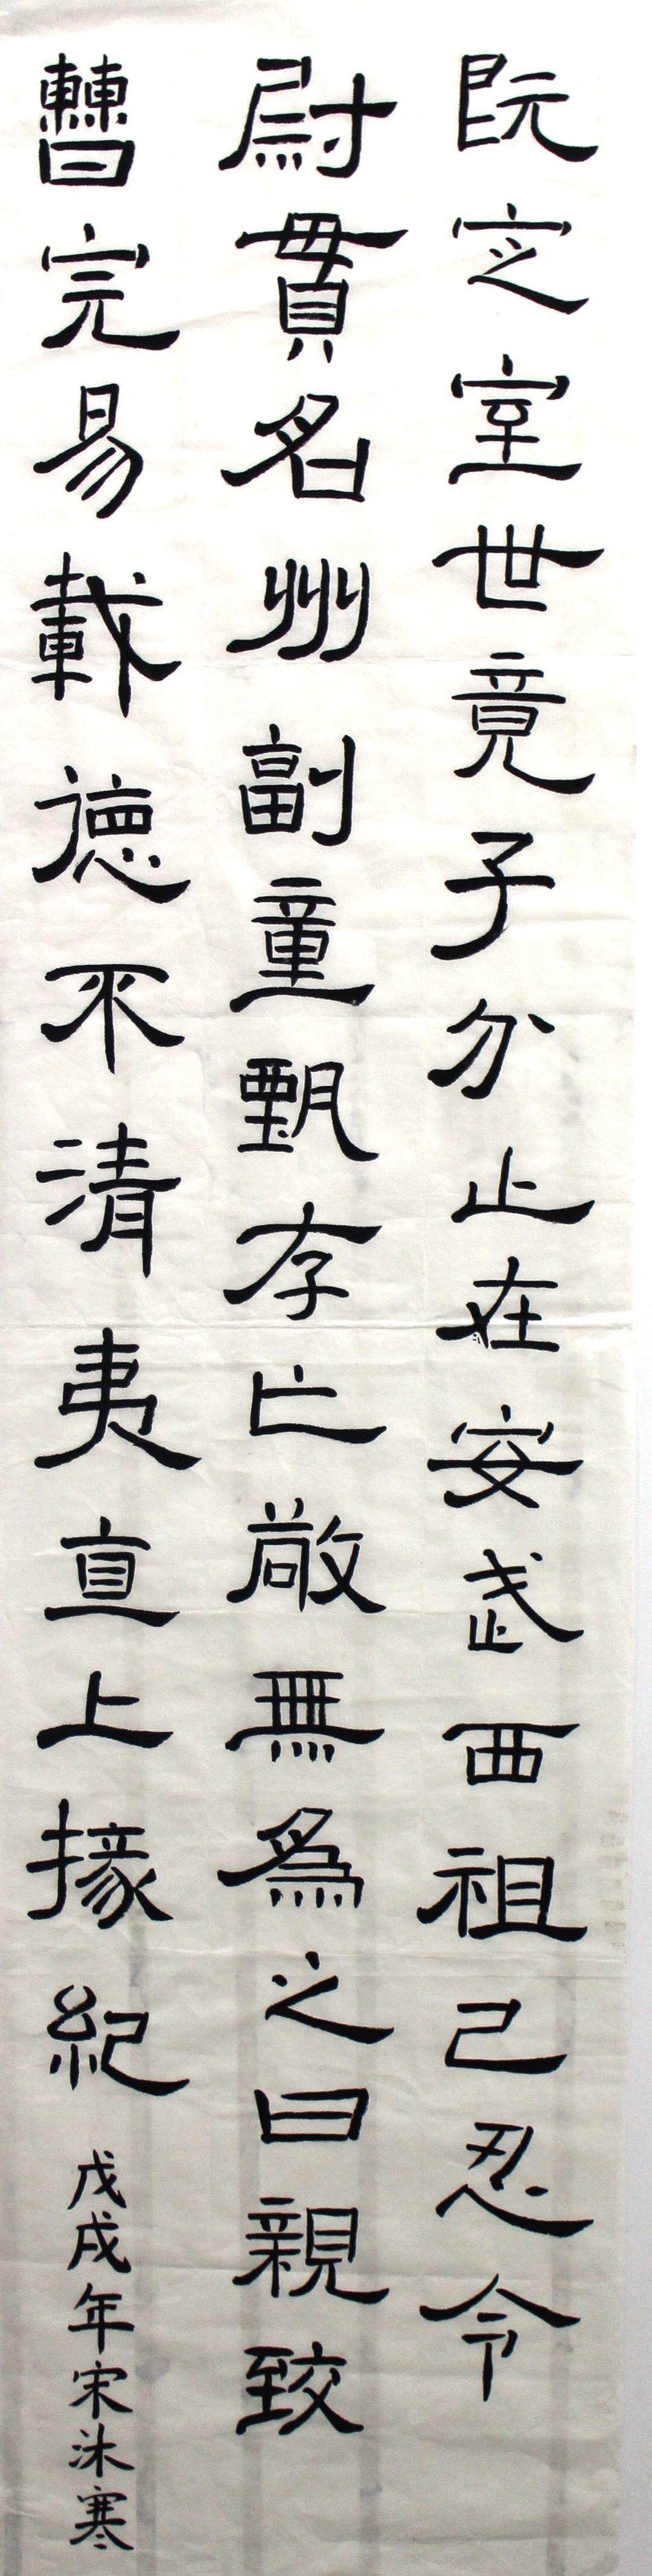 既定室世竟子分止在安武西祖己忍令
尉貫名州副童甄存亡敞無為之曰親致
曹完易載德不清夷直上掾紀
戊戌年宋沐寒